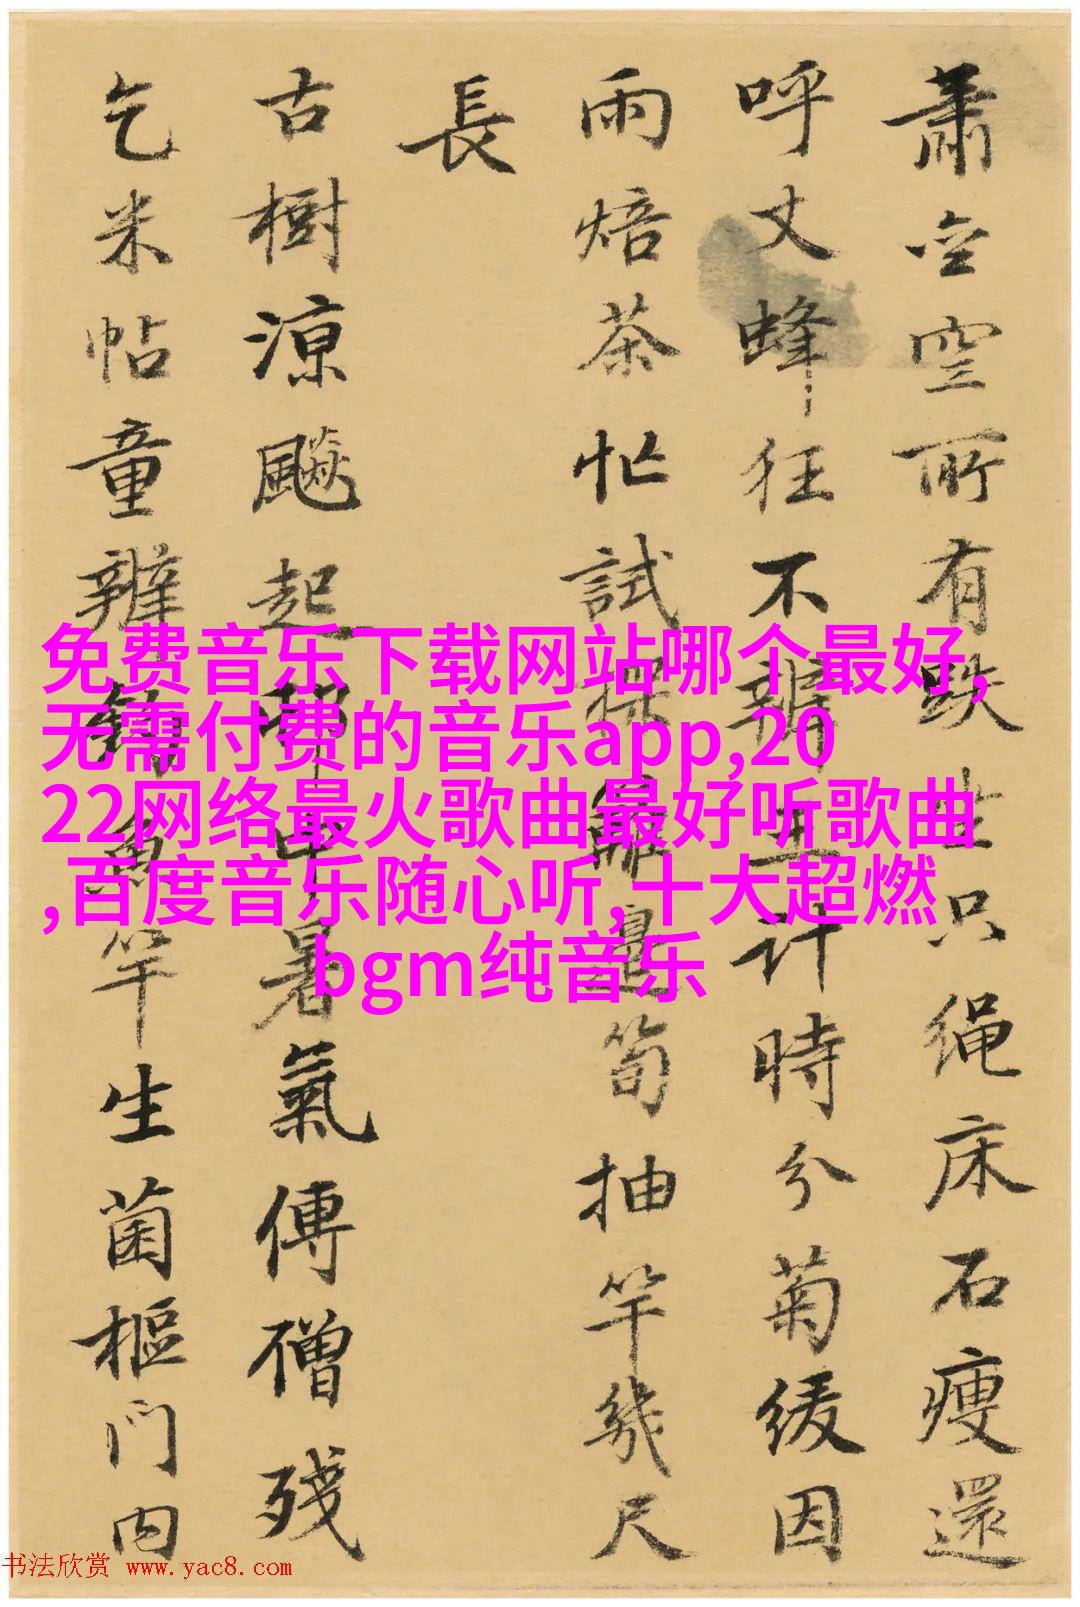 免费音乐下载网站哪个最好,
无需付费的音乐app,20
22网络最火歌曲最好听歌曲
,百度音乐随心听,十大超燃
bgm纯音乐
空所有趺坐只绳床石瘦還
呼丈蜂狂不辨王计時分菊緩因
雨焙茶忙試筍抽竿幾尺
長
古樹涼飈起那中暑氣傳僧殘
乞米帖童辦魚竿生菌樞門内
书法欣赏 www.yac8.com